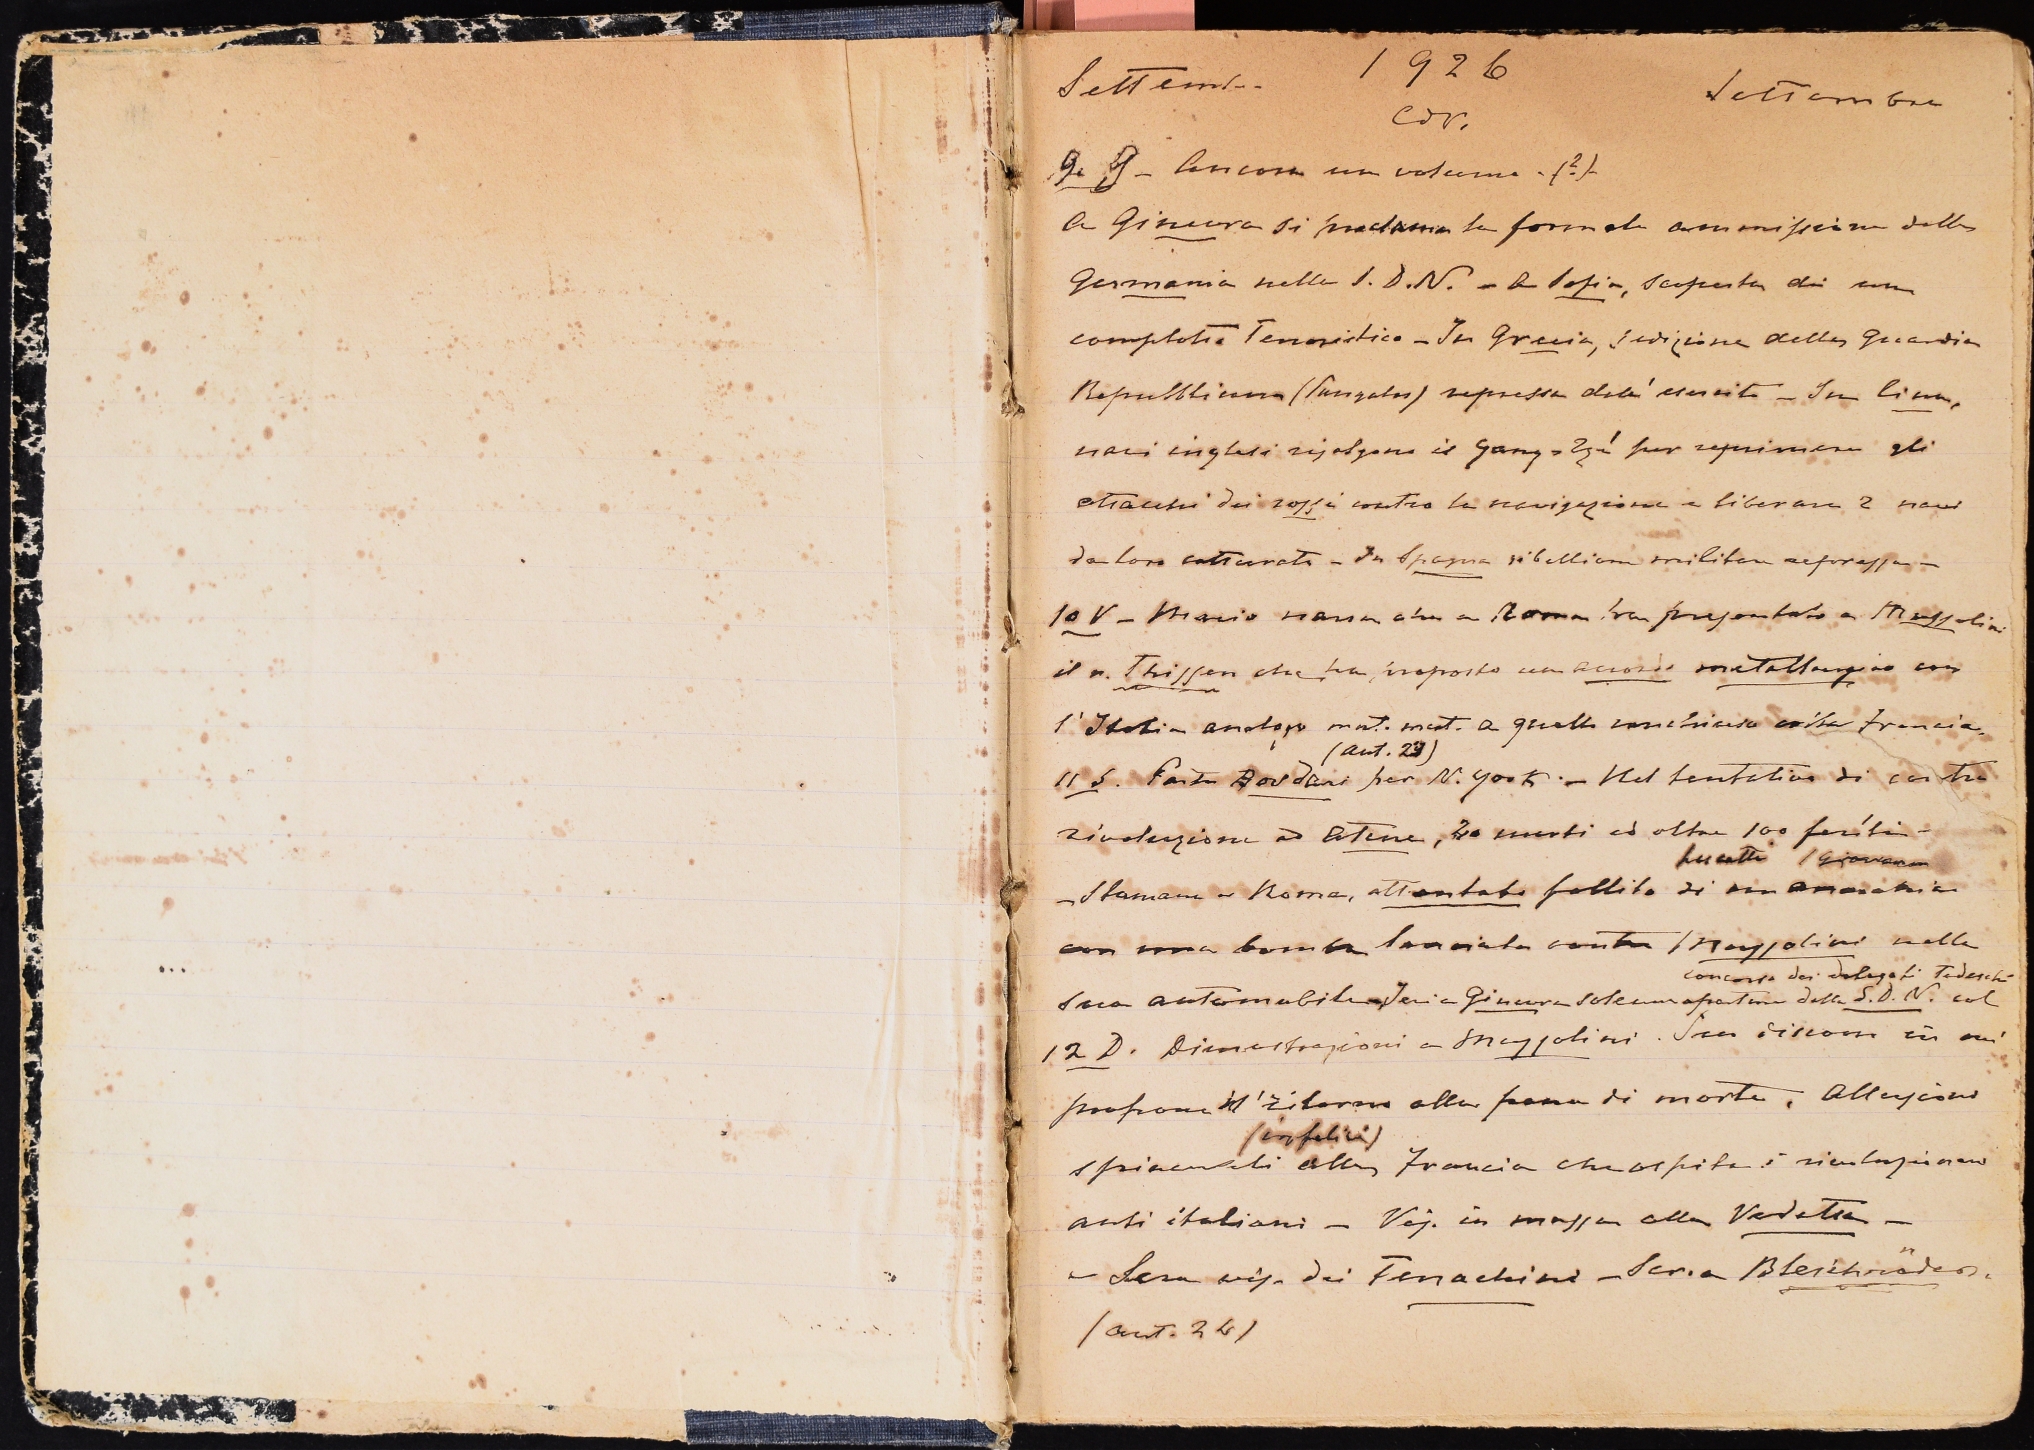 Settemb.. 1926 Settembre
Cdv.
9. G - Ancora un volume. (?)
A Ginevra si proclama la formale ammissione della
Germania nella S.D.N. - A Sofia, scoperta di un
complotto terroristico - In Grecia, sedizione della Guardia
Repubblicana (Pangalos) repressa dall'esercito - In Cina,
navi inglesi risalgono il Yang-Tzé per reprimere gli
attacchi dei rossi contro la navigazione e liberare 2 navi
da loro catturate - In Spagna ribellione militare repressa -
10 V - Mario narra che a Roma ha presentato a Mussolini
il n. Thissen che ha proposto un accordo metallurgico con
l'Italia analogo mut. mut. a quello conchiuso colla Francia.
(aut. 23)
11 S. Parte Dordani per N. York. - Nel tentativo di contro
rivoluzione ad Atene, 40 morti ed oltre 100 feriti -
Lucetti (Giovanni
- Stamane a Roma, attentato fallito di un anarchico
con una bomba lanciata contro Mussolini nella
concorso dei delegati Tedeschi
sua automobile. Ieri a Ginevra solenne apertura della S.D.N. col
12 D. Dimostrazioni a Mussolini. Suo discorso in cui
propone il ritorno alla pena di morte. Allusioni
(infelici)
spiacevoli alla Francia che ospita i rivoluzionari
anti italiani - Vis. in massa alla Vedetta -
- Sera vis. dei Ferrachini - Ser. a Bleschröder.
(aut. 24)